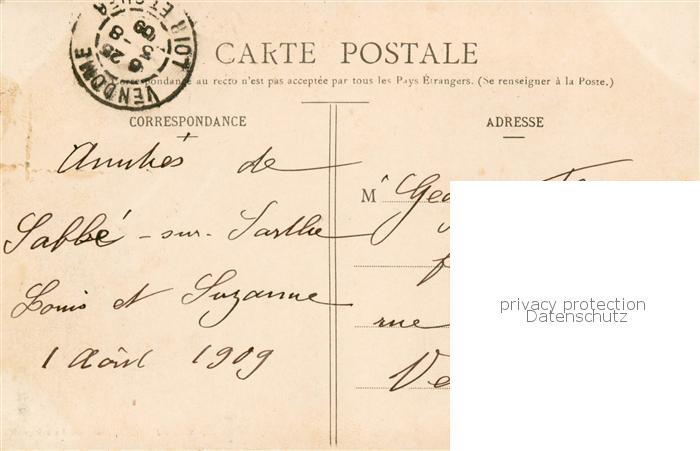 VENDOME
LOIR ET CHER
6 35
25 -8
09
CARTE POSTALE
Correspondance au recto n'est pas acceptée par tous les Pays Étrangers. (Se renseigner à la Poste.)
CORRESPONDANCE
Amitiés de
Sablé-sur-Sarthe
Louis et Suzanne
1 Août 1909
ADRESSE
M
rue
privacy protection
Datenschutz